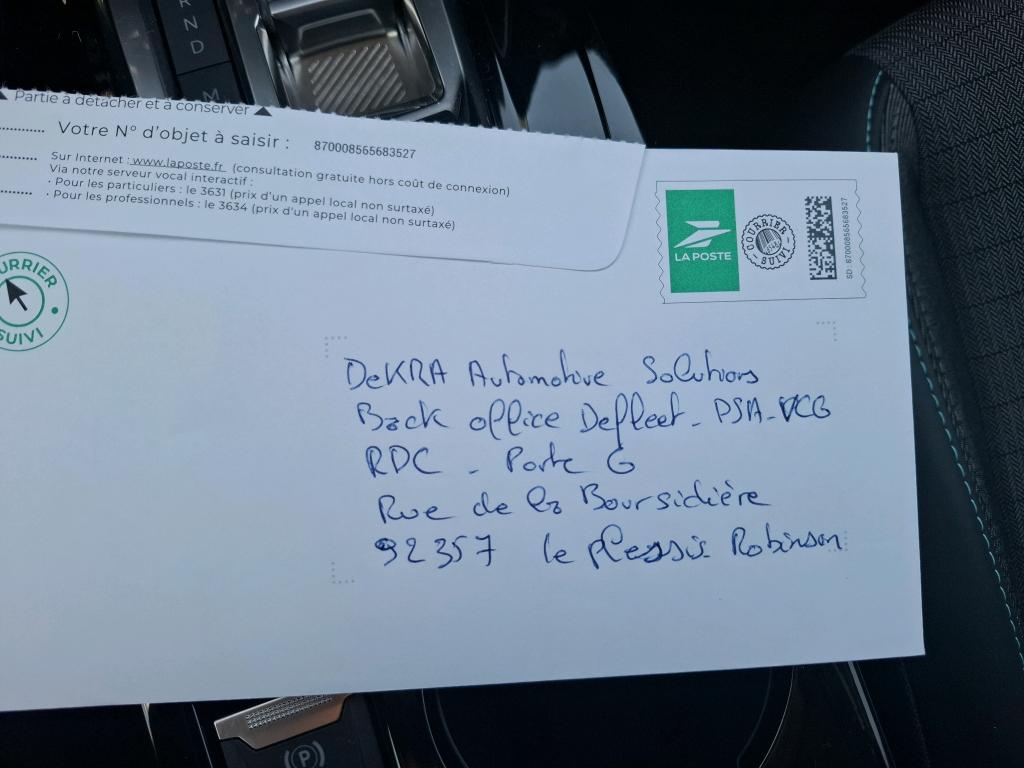 R
N
D
M
Partie à détacher et à conserver
Votre N° d'objet à saisir : 870008565683527
Sur Internet : www.laposte.fr (consultation gratuite hors coût de connexion)
Via notre serveur vocal interactif :
· Pour les particuliers : le 3631 (prix d'un appel local non surtaxé)
· Pour les professionnels : le 3634 (prix d'un appel local non surtaxé)
LA POSTE
COURRIER
SUIVI
SD : 870008565683527
OURRIER
SUIVI
DeKRA Automotive Solutions
Back office Defleet - PSA - VCG
RDC - Porte G
Rue de la Boursidière
92357 le plessis Robinson
P